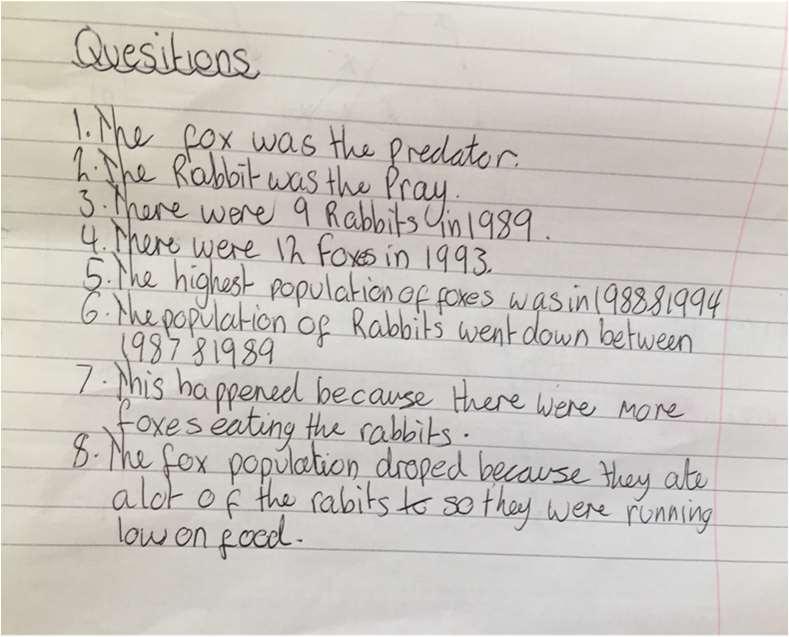 Quesitions
1. The fox was the predator.
2. The Rabbit was the Pray.
3. There were 9 Rabbits in 1989.
4. There were 12 foxes in 1993.
5. The highest population of foxes was in 1988 & 1994
6. The population of Rabbits went down between
1987 & 1989
7. This happened because there were more
foxes eating the rabbits.
8. The fox population droped because they ate
a lot of the rabits to so they were running
low on food.